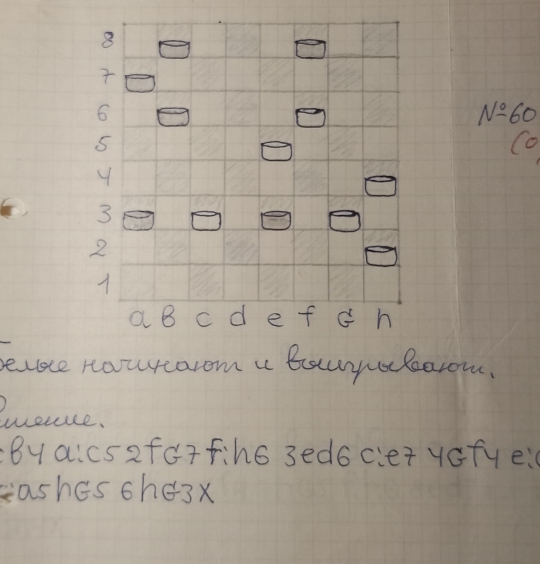 8
7
6
5
4
3
2
1
a b c d e f G h
№60
Белые начинают и выигрывают.
:b4 a:c5 2fG7 f:h6 3ed6 c:e7 4Gf4 e:
:a5 hG5 6hG3X